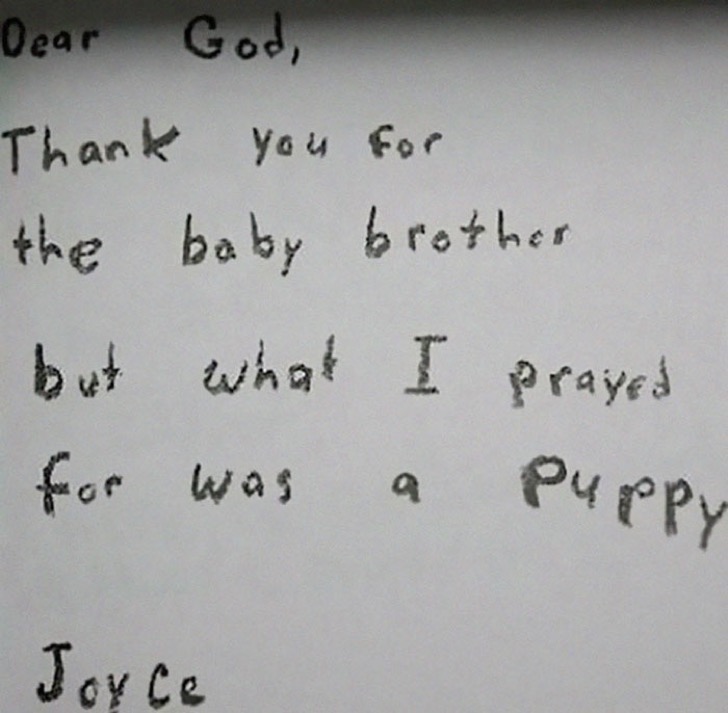 Dear God,
Thank you for
the baby brother
but what I prayed
for was a Puppy
Joyce